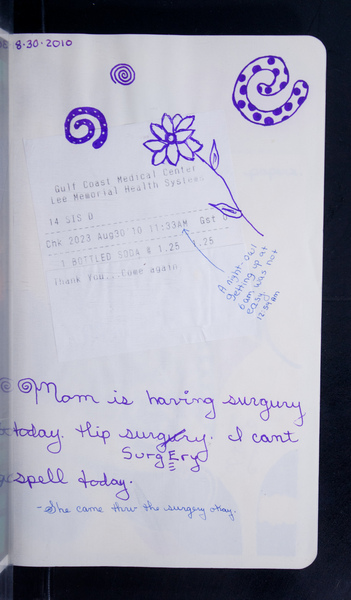 8·30·2010
Gulf Coast Medical Center
Lee Memorial Health Systems
14 SIS O
Chk 2023 Aug30'10 11:33AM Gst 0
1 BOTTLED SODA @ 1.25 1.25
Thank You...Come again
A night-owl
getting up at
6am was not
easy.
12:54am
Mom is having surgury
today. Hip surgury. I cant
SurgEry
spell today.
-She came thru the surgery okay.